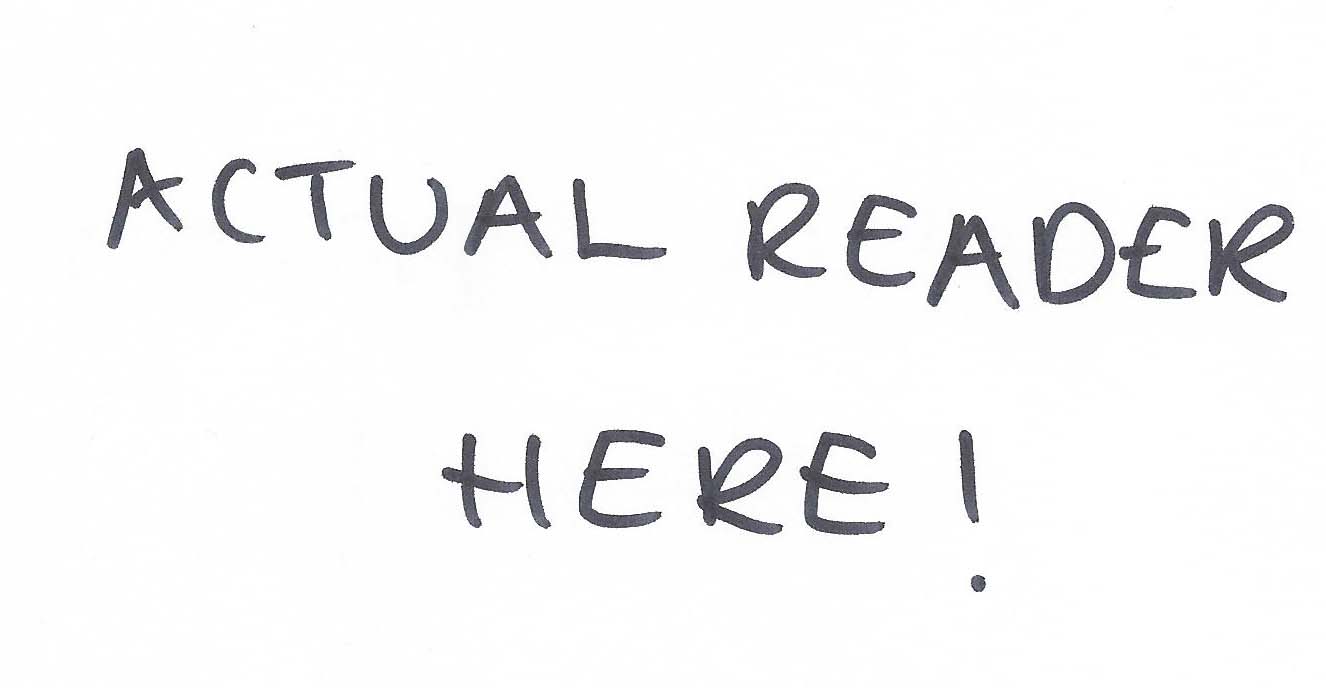 ACTUAL READER
HERE!